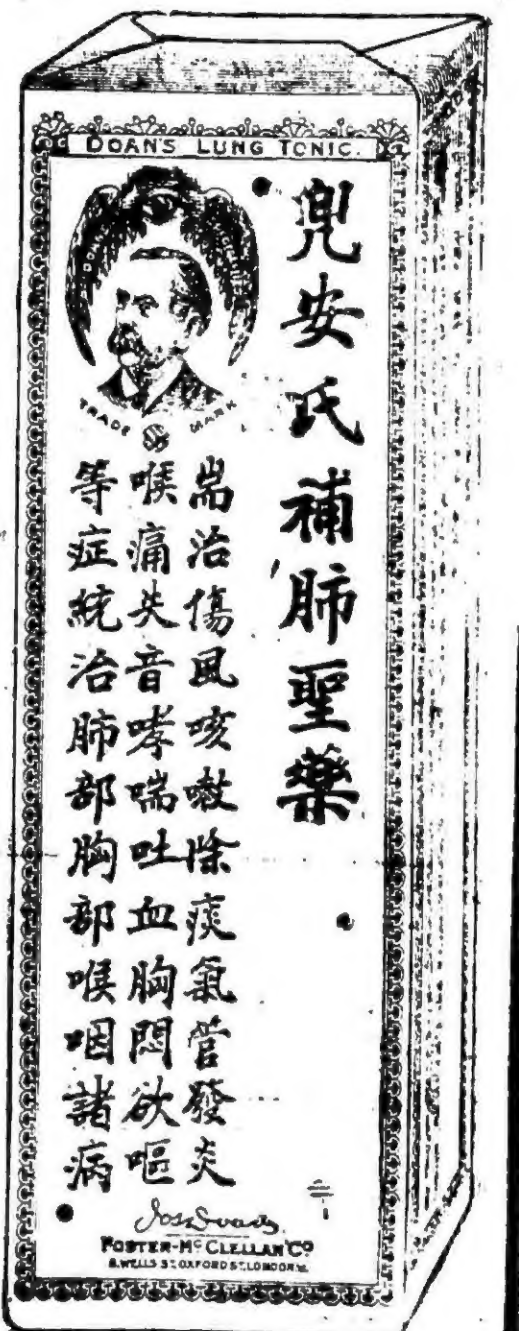 DOAN'S LUNG TONIC.
兜安氏補肺聖藥
耑治傷風咳嗽除痰氣管發炎
喉痛失音哮喘吐血胸悶欲嘔
等症統治肺部胸部喉咽諸病
TRADE MARK
FOSTER-McCLELLAN Co
8, WELLS ST. OXFORD ST. LONDON W.